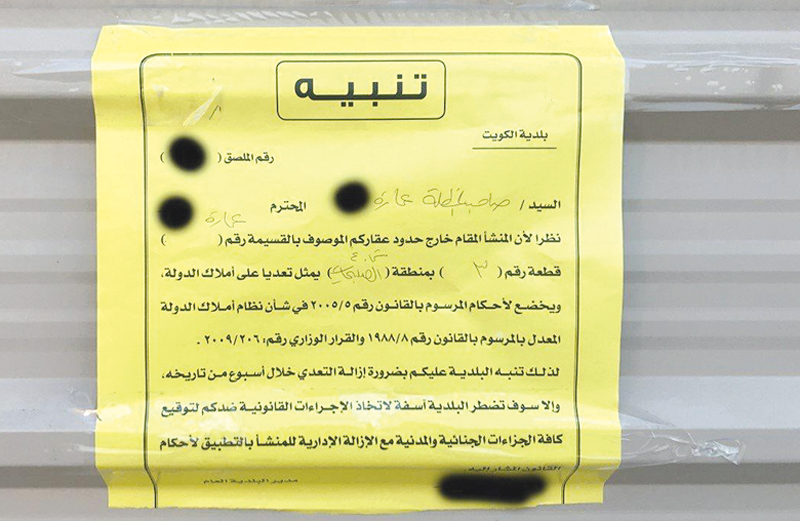 تنبيه
بلدية الكويت
رقم الملصق ( )
السيد / صاحب عمارة المحترم
عمارة
نظرا لأن المنشأ المقام خارج حدود عقاركم الموصوف بالقسيمة رقم ( )
ش ٤٠
قطعة رقم ( ٣ ) بمنطقة ( ) يمثل تعديا على أملاك الدولة،
ويخضع لأحكام المرسوم بالقانون رقم ٢٠٠٥/٥ في شأن نظام أملاك الدولة
المعدل بالمرسوم بالقانون رقم ١٩٨٨/٨ والقرار الوزاري رقم: ٢٠٠٩/٢٠٦ .
لذلك تنبه البلدية عليكم بضرورة إزالة التعدي خلال أسبوع من تاريخه،
وإلا سوف تضطر البلدية آسفة لاتخاذ الإجراءات القانونية ضدكم لتوقيع
كافة الجزاءات الجنائية والمدنية مع الإزالة الإدارية للمنشأ بالتطبيق لأحكام
القانون المشار إليه.
مدير البلدية العام